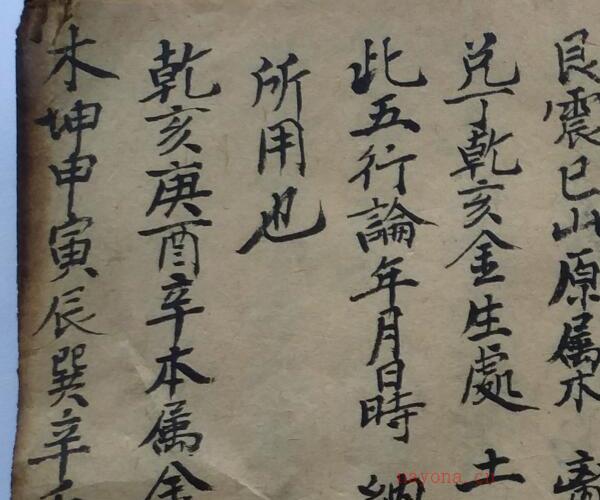 艮震巳山原属木
兑丁乾亥金生處 土
此五行論年月日時
所用也
乾亥庚酉辛本属金
木坤申寅辰巽辛
nayona.cn